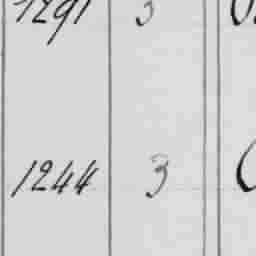 1291 3
1244 3